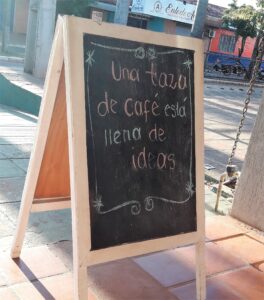 Una taza
de café está
llena de
ideas